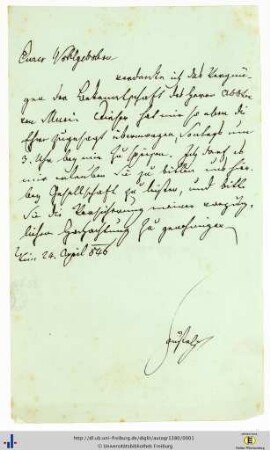 Euer Wohlgeboren
verdanke ich das Vergnü-
gen der Bekanntschaft des Herrn
Dieser hat mir so eben die
Ehre zugesagt übermorgen, Sonntags um
3. Uhr bey mir zu speisen. Ich darf es
mir erlauben Sie zu bitten uns hier-
bey Gesellschaft zu leisten, und bitte
Sie die Versicherung meiner vorzüg-
lichen Hochachtung zu genehmigen
24. April 846
http://dl.ub.uni-freiburg.de/diglit/autogr1380/0001
© Universitätsbibliothek Freiburg